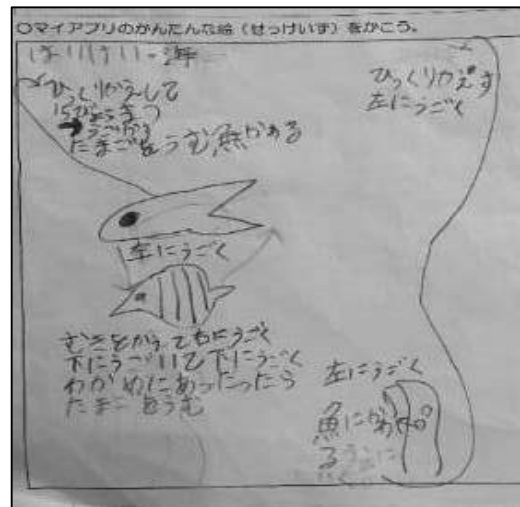 〇マイアプリのかんたんな絵（せっけいず）をかこう。
はいけい→海
ひっくりかえして
1びょうまつ
うごかす
たまごをうむ魚がある
ひっくりかえす
左にうごく
左にうごく
むきをかえて右にうごく
下にうごいて下にうごく
わかめにあったったら
たまごをうむ
左にうごく
魚にかわ